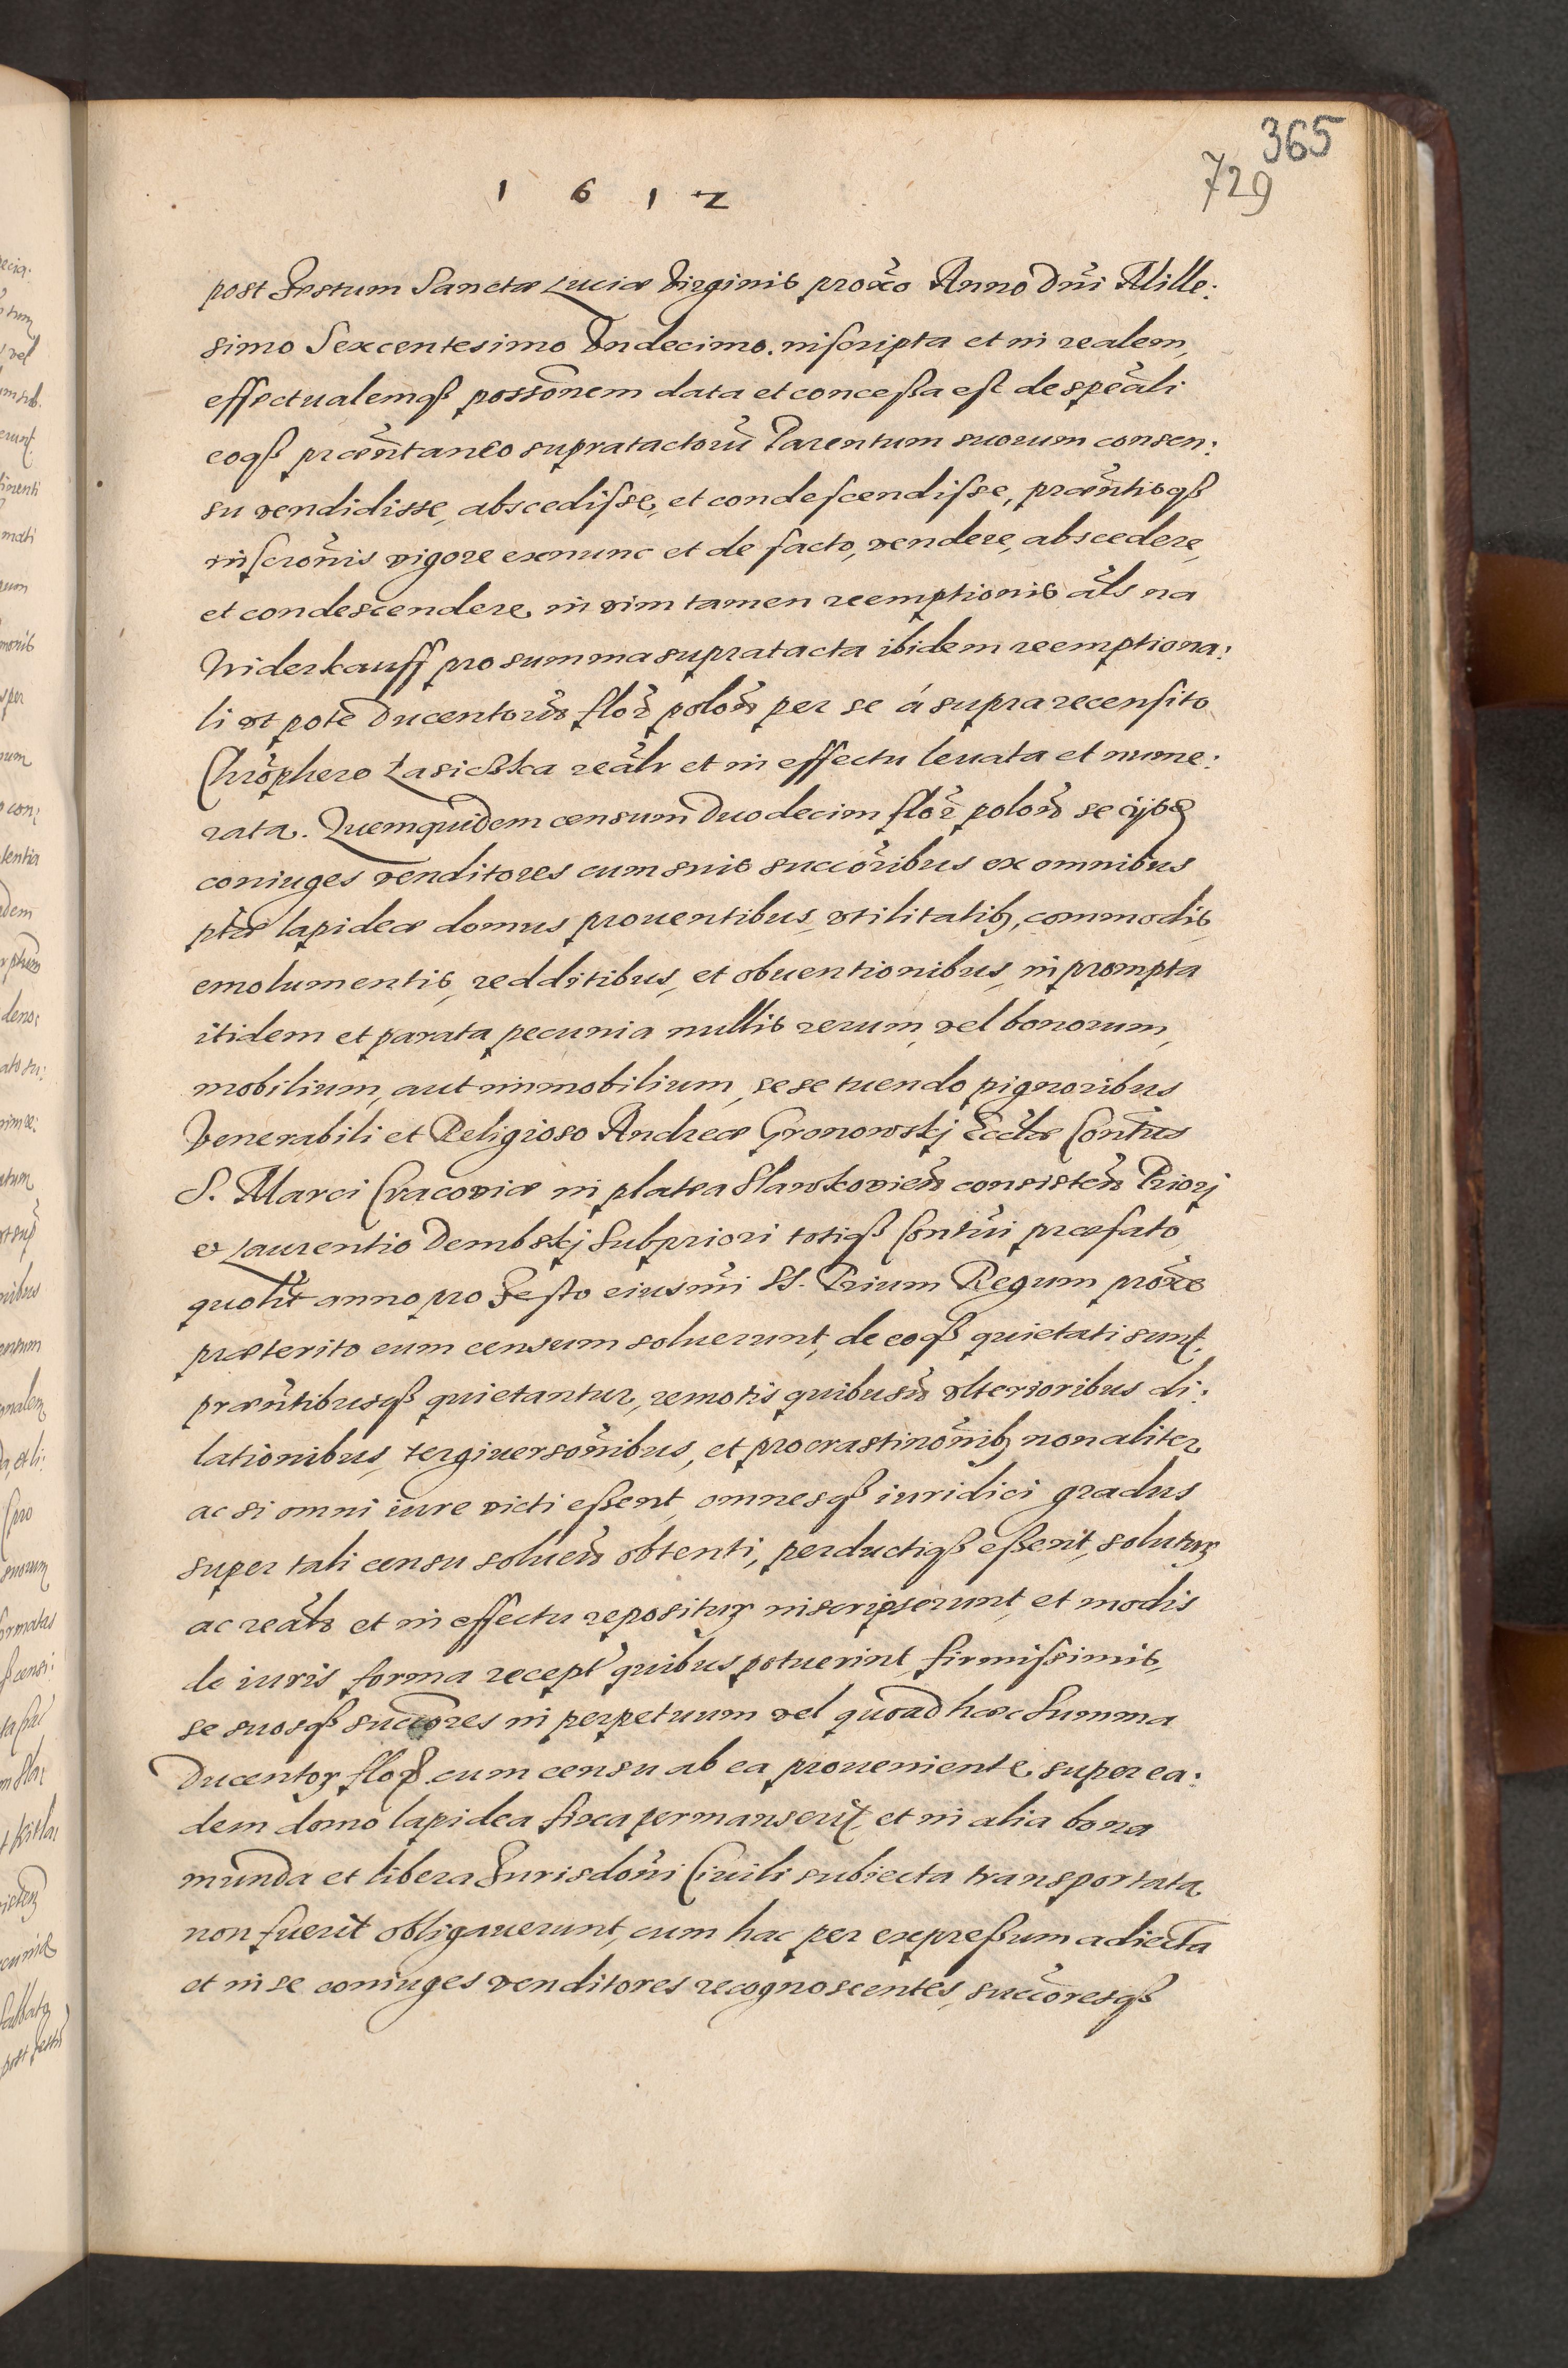 365
729
1 6 1 2
post Festum Sanctæ Luciæ Virginis proxo Anno Dni Mille:
simo Sexcentesimo Vndecimo. inscripta et in realem,
effectualemqß possonem data et conceßa est de speali
eoqß præntaneo supratactoru Parentum suorum consen:
su vendidisse, abscedisse, et condescendisse, præntisqß
inscronis vigore exnunc et de facto, vendere, abscedere,
et condescendere in vim tamen reemptionis als na
Widerkauff pro summa supratacta ibidem reemptiona:
li vt pote Ducentorum flor polon per se á supra recensito
Chrophero Lasicka realr et in effectu leuata et nume:
rata. Quemquidem censum Duodecim flor polon se ijdem
coniuges venditores cum suis succoribus ex omnibus
ptæ lapideæ domus prouentibus, vtilitatib, commodis,
emolumentis, redditibus, et obuentionibus, in prompta
itidem et parata pecunia nullis rerum, vel bonorum,
mobilium, aut immobilium, sese tuendo pignoribus
Venerabili et Religioso Andreæ Gronowskj Ecclæ Contus
S. Marci Cracoviæ in platea Slawkovien consisten Priorj
et Laurentio Dembskj Subpriori totiqß Contui præfato
quolt anno pro Festo eiusmi SS. Trium Regum proxe
præterito eum censum soluerunt, de eoqß quietati sunt.
præntibusqß quietantur, remotis quibusuis vlterioribus di:
lationibus, tergiuersonibus, et procrastinonib, non aliter
ac si omni iure victi eßent, omnesqß iuridici gradus
super tali censu soluen obtenti, perductiqß eßent, soluturos
ac realr et in effectu reposituros inscripserunt, et modis
de iuris forma recept quibus potuerint firmissimis,
se suosqß succores in perpetuum vel quoad hæc Summa
Ducentor flor. cum censu ab ea proueniente, super ea:
dem domo lapidea fixa permanserit et in alia bona
munda et libera Jurisdoni Ciuili subiecta transportata
non fuerit obligauerunt, cum hac per expreßum adiecta
et in se coniuges venditores recognoscentes, succoresqß